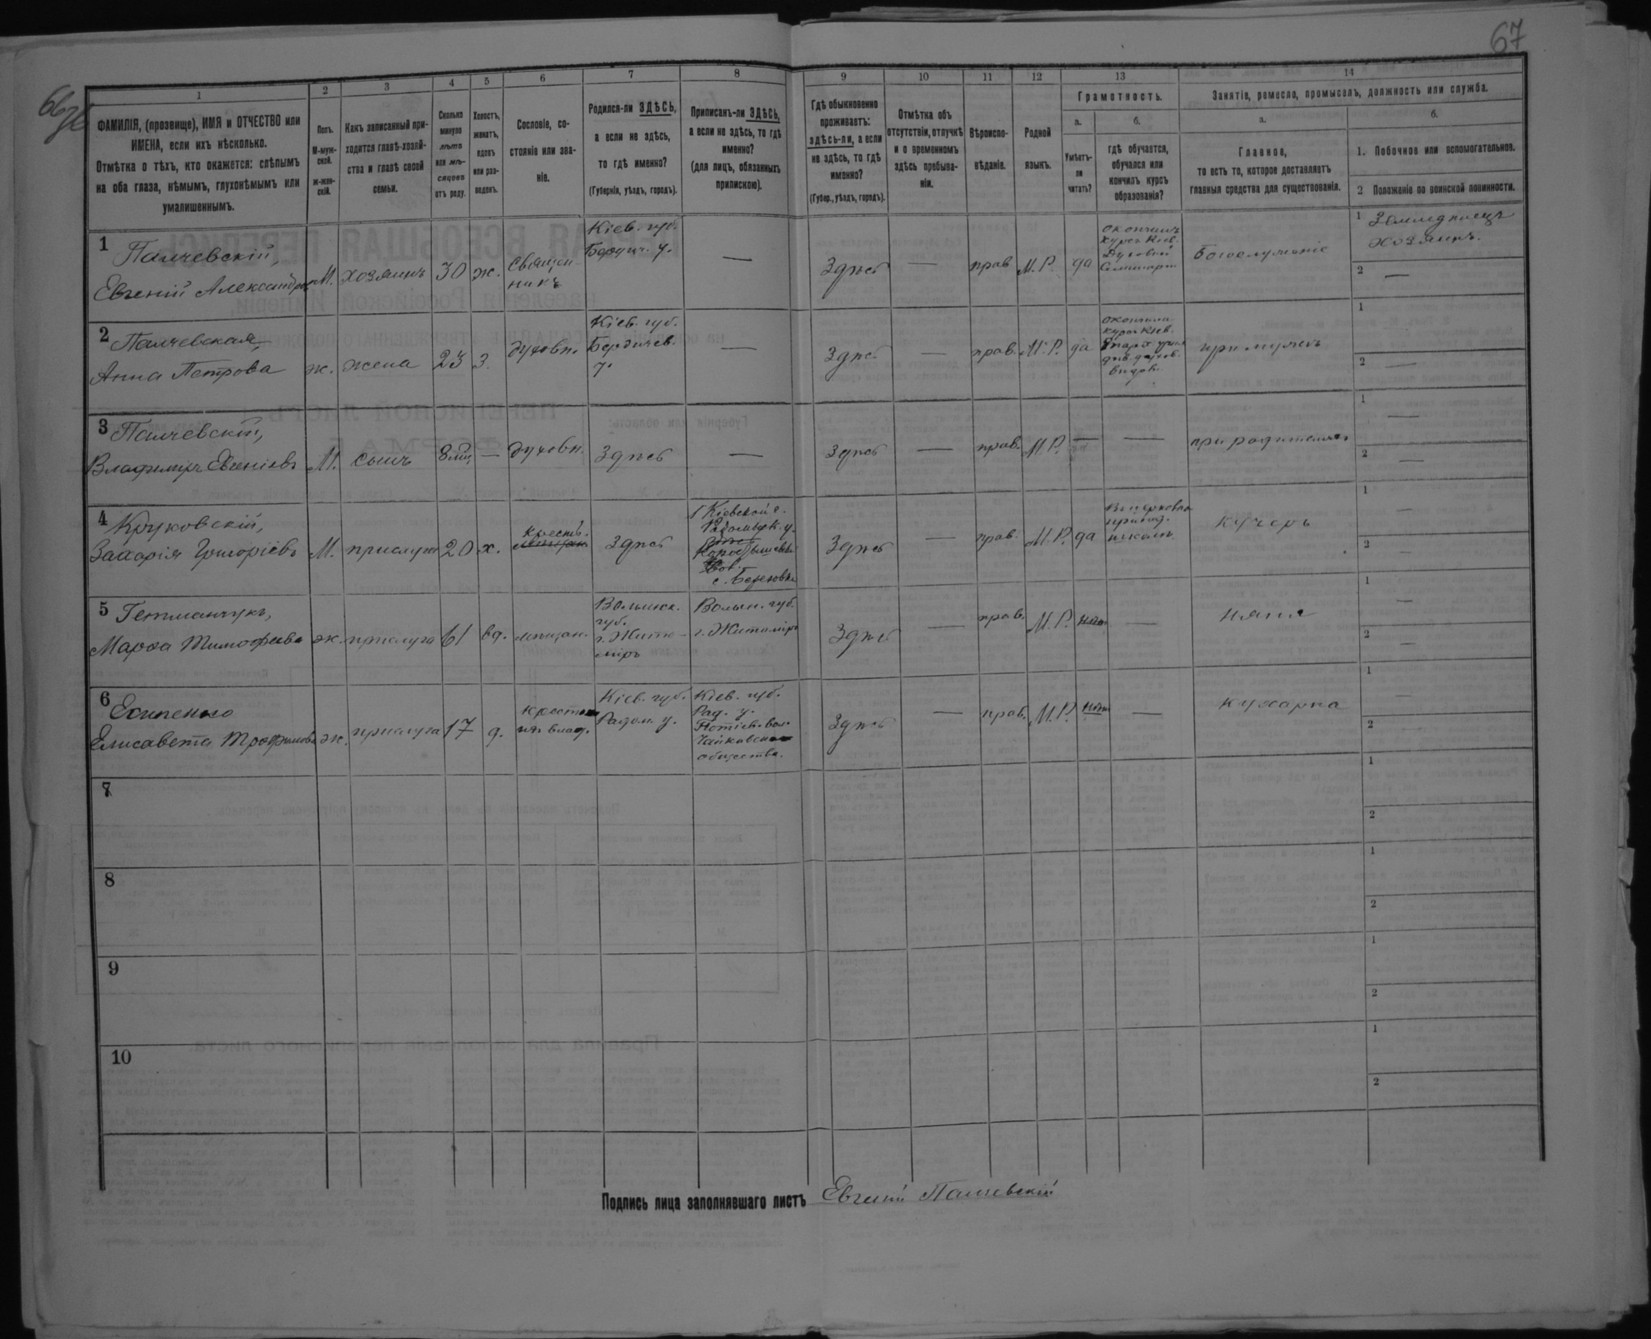 67
1 2 3 4 5 6 7 8 9 10 11 12 13 14
ФАМИЛІЯ, (прозвище), ИМЯ и ОТЧЕСТВО или
ИМЕНА, если ихъ нѣсколько.
Отмѣтка о тѣхъ, кто окажется: слѣпымъ
на оба глаза, нѣмымъ, глухонѣмымъ или
умалишеннымъ.
Полъ.
М-муж-
ской.
ж-жен-
скій.
Какъ записанный при-
ходится главѣ хозяй-
ства и главѣ своей
семьи.
Сколько
минуло
лѣтъ
или мѣ-
сяцевъ
отъ роду.
Холостъ,
женатъ,
вдовъ
или раз-
веденъ.
Сословіе, со-
стояніе или зва-
ніе.
Родился-ли ЗДѢСЬ,
а если не здѣсь,
то гдѣ именно?
(Губернія, уѣздъ, городъ).
Приписанъ-ли ЗДѢСЬ,
а если не здѣсь, то гдѣ
именно?
(для лицъ, обязанныхъ
припискою).
Гдѣ обыкновенно
проживаетъ:
здѣсь-ли, а если
не здѣсь, то гдѣ
именно?
(Губер., уѣздъ, городъ).
Отмѣтка объ
отсутствіи, отлучкѣ
и о временномъ
здѣсь пребыва-
ніи.
Вѣроиспо-
вѣданіе.
Родной
языкъ.
Грамотность.
а.
Умѣетъ-
ли
читать?
б.
гдѣ обучается,
обучался или
кончилъ курсъ
образованія?
Занятіе, ремесло, промыселъ, должность или служба.
а.
Главное,
то есть то, которое доставляетъ
главныя средства для существованія.
б.
1. Побочное или вспомогательное.
2 Положеніе по воинской повинности.
1 Палчевскій,
Евгеній Александровъ М. хозяинъ 30 ж. Священ
никъ
Кіев. губ.
Бердич. у.
— Здѣсь прав М.Р. да
окончилъ
курсъ Кіев.
Духовной
Семинаріи
Богослуженіе
1 Земледѣлецъ
хозяинъ.
2 —
2 Палчевская,
Анна Петрова ж. жена 23 з. духовн.
Кіев. губ.
Бердичев.
у.
— Здѣсь — прав. М.Р. да
окончила
курсъ Кіев.
при мужѣ
1
2 —
3 Палчевскій,
Владиміръ Евгеніевъ М. сынъ 8 мѣц — духовн. Здѣсь — Здѣсь прав. М.Р. — — при родителяхъ
1 —
2 —
4 Круковскій,
Захарія Григоріевъ М. прислуга 20 х.
крестья.
Здѣсь
Кіевской г.
Радомысл. у.
Коростышевск.
Вол.
Здѣсь — прав. М.Р. да
Въ церковно
приход.
школѣ.
Кучеръ
1 —
2 —
5 Гетманчукъ,
Марѳа Тимофеева ж. прислуга 61 вд. мѣщан.
Волынск.
губ.
г. Жито-
міръ
Волын. губ.
г. Житоміръ
Здѣсь — прав. М.Р. нѣтъ — няня
1 —
2 —
6 Есипенко
Елисавета Трофимова ж. прислуга 17 д.
крестьян
изъ влад.
Кіев. губ.
Радом. у.
Кіев. губ.
Рад. у.
Потіев. вол.
Чайковского
общества.
Здѣсь — прав. М.Р. нѣтъ — кухарка
1 —
2 —
7
1
2
8
1
2
9
1
2
10
1
2
Подпись лица заполнявшаго листъ Евгеній Палчевскій